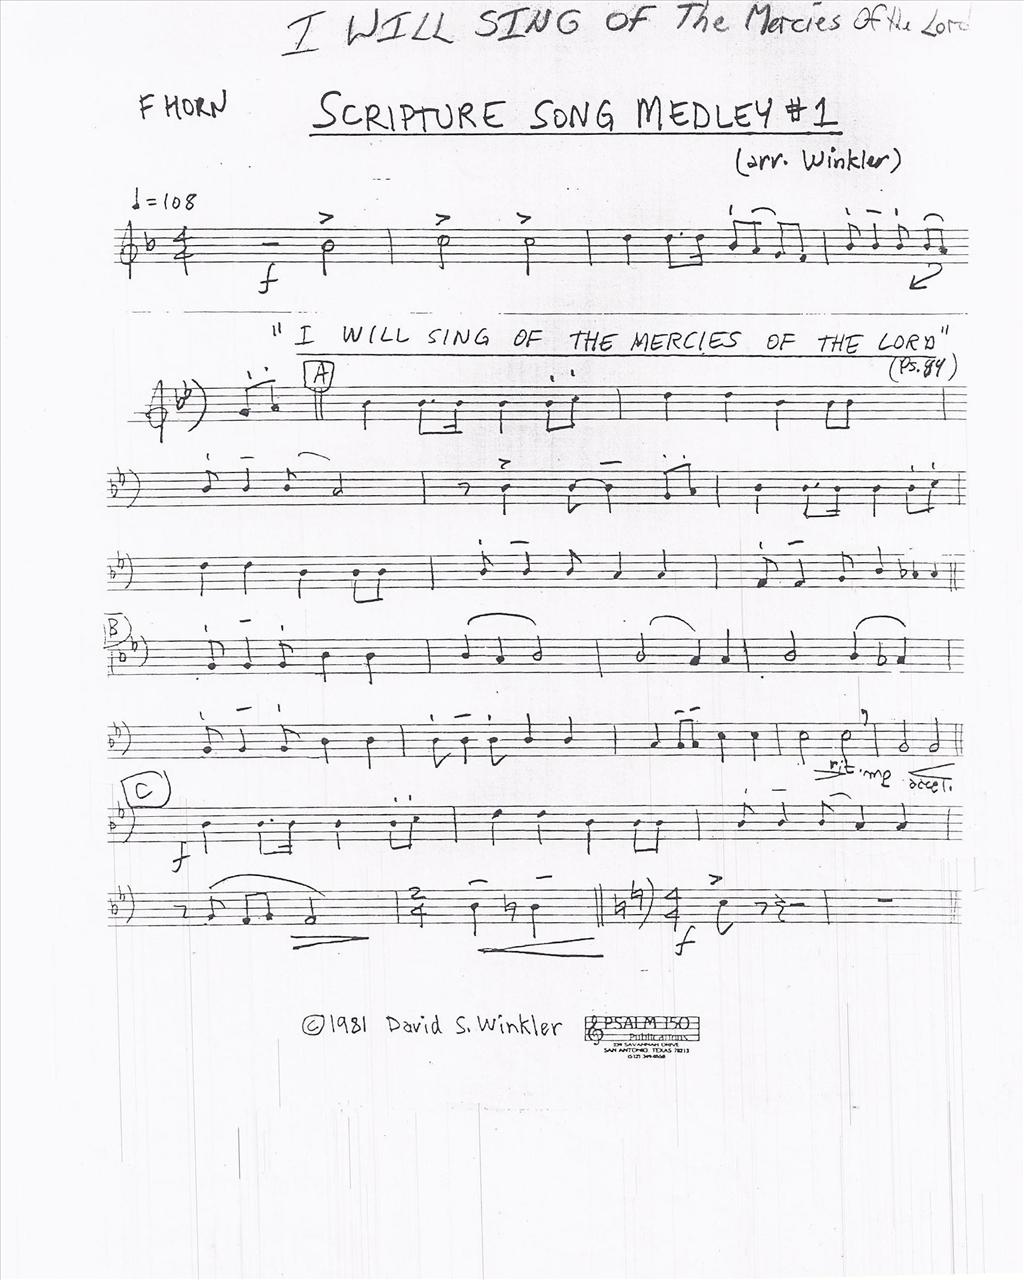 I WILL SING OF The Mercies Of the Lord
F HORN
SCRIPTURE SONG MEDLEY #1
(arr. Winkler)
♩=108
f
"I WILL SING OF THE MERCIES OF THE LORD"
(Ps. 89)
A
B
rit. mp accel.
C
f
f
©1981 David S. Winkler
PSALM 150
Publications
SAVANNAH DRIVE
SAN ANTONIO, TEXAS 78213